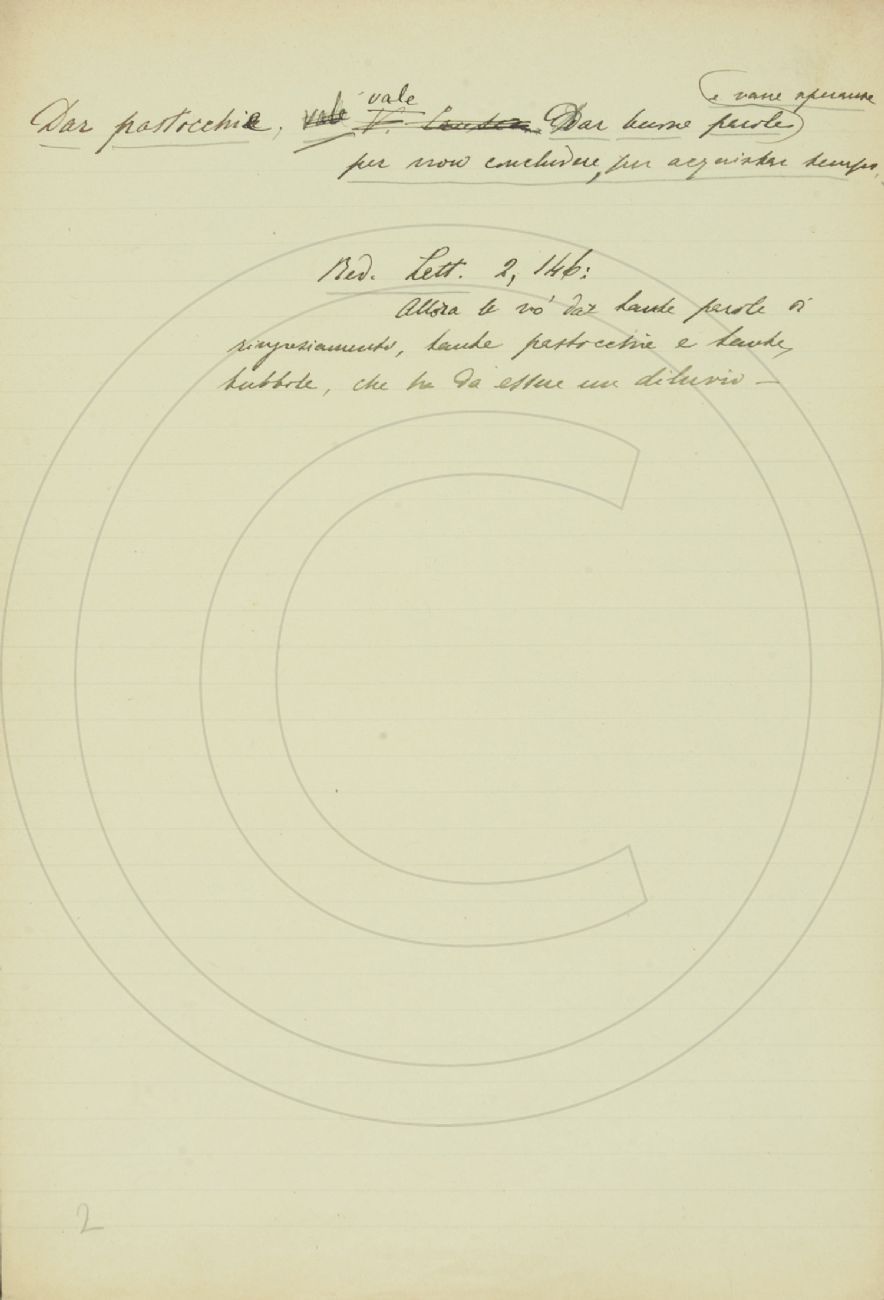 e vane speranze
vale
Dar pastocchie, vale V. Dar buone parole
per non concludere, per acquistar tempo.
Red. Lett. 2, 146:
Allora le vo' dar tante parole di
ringraziamento, tante pastocchie e tante
bubbole, che ha da essere un diluvio —
2